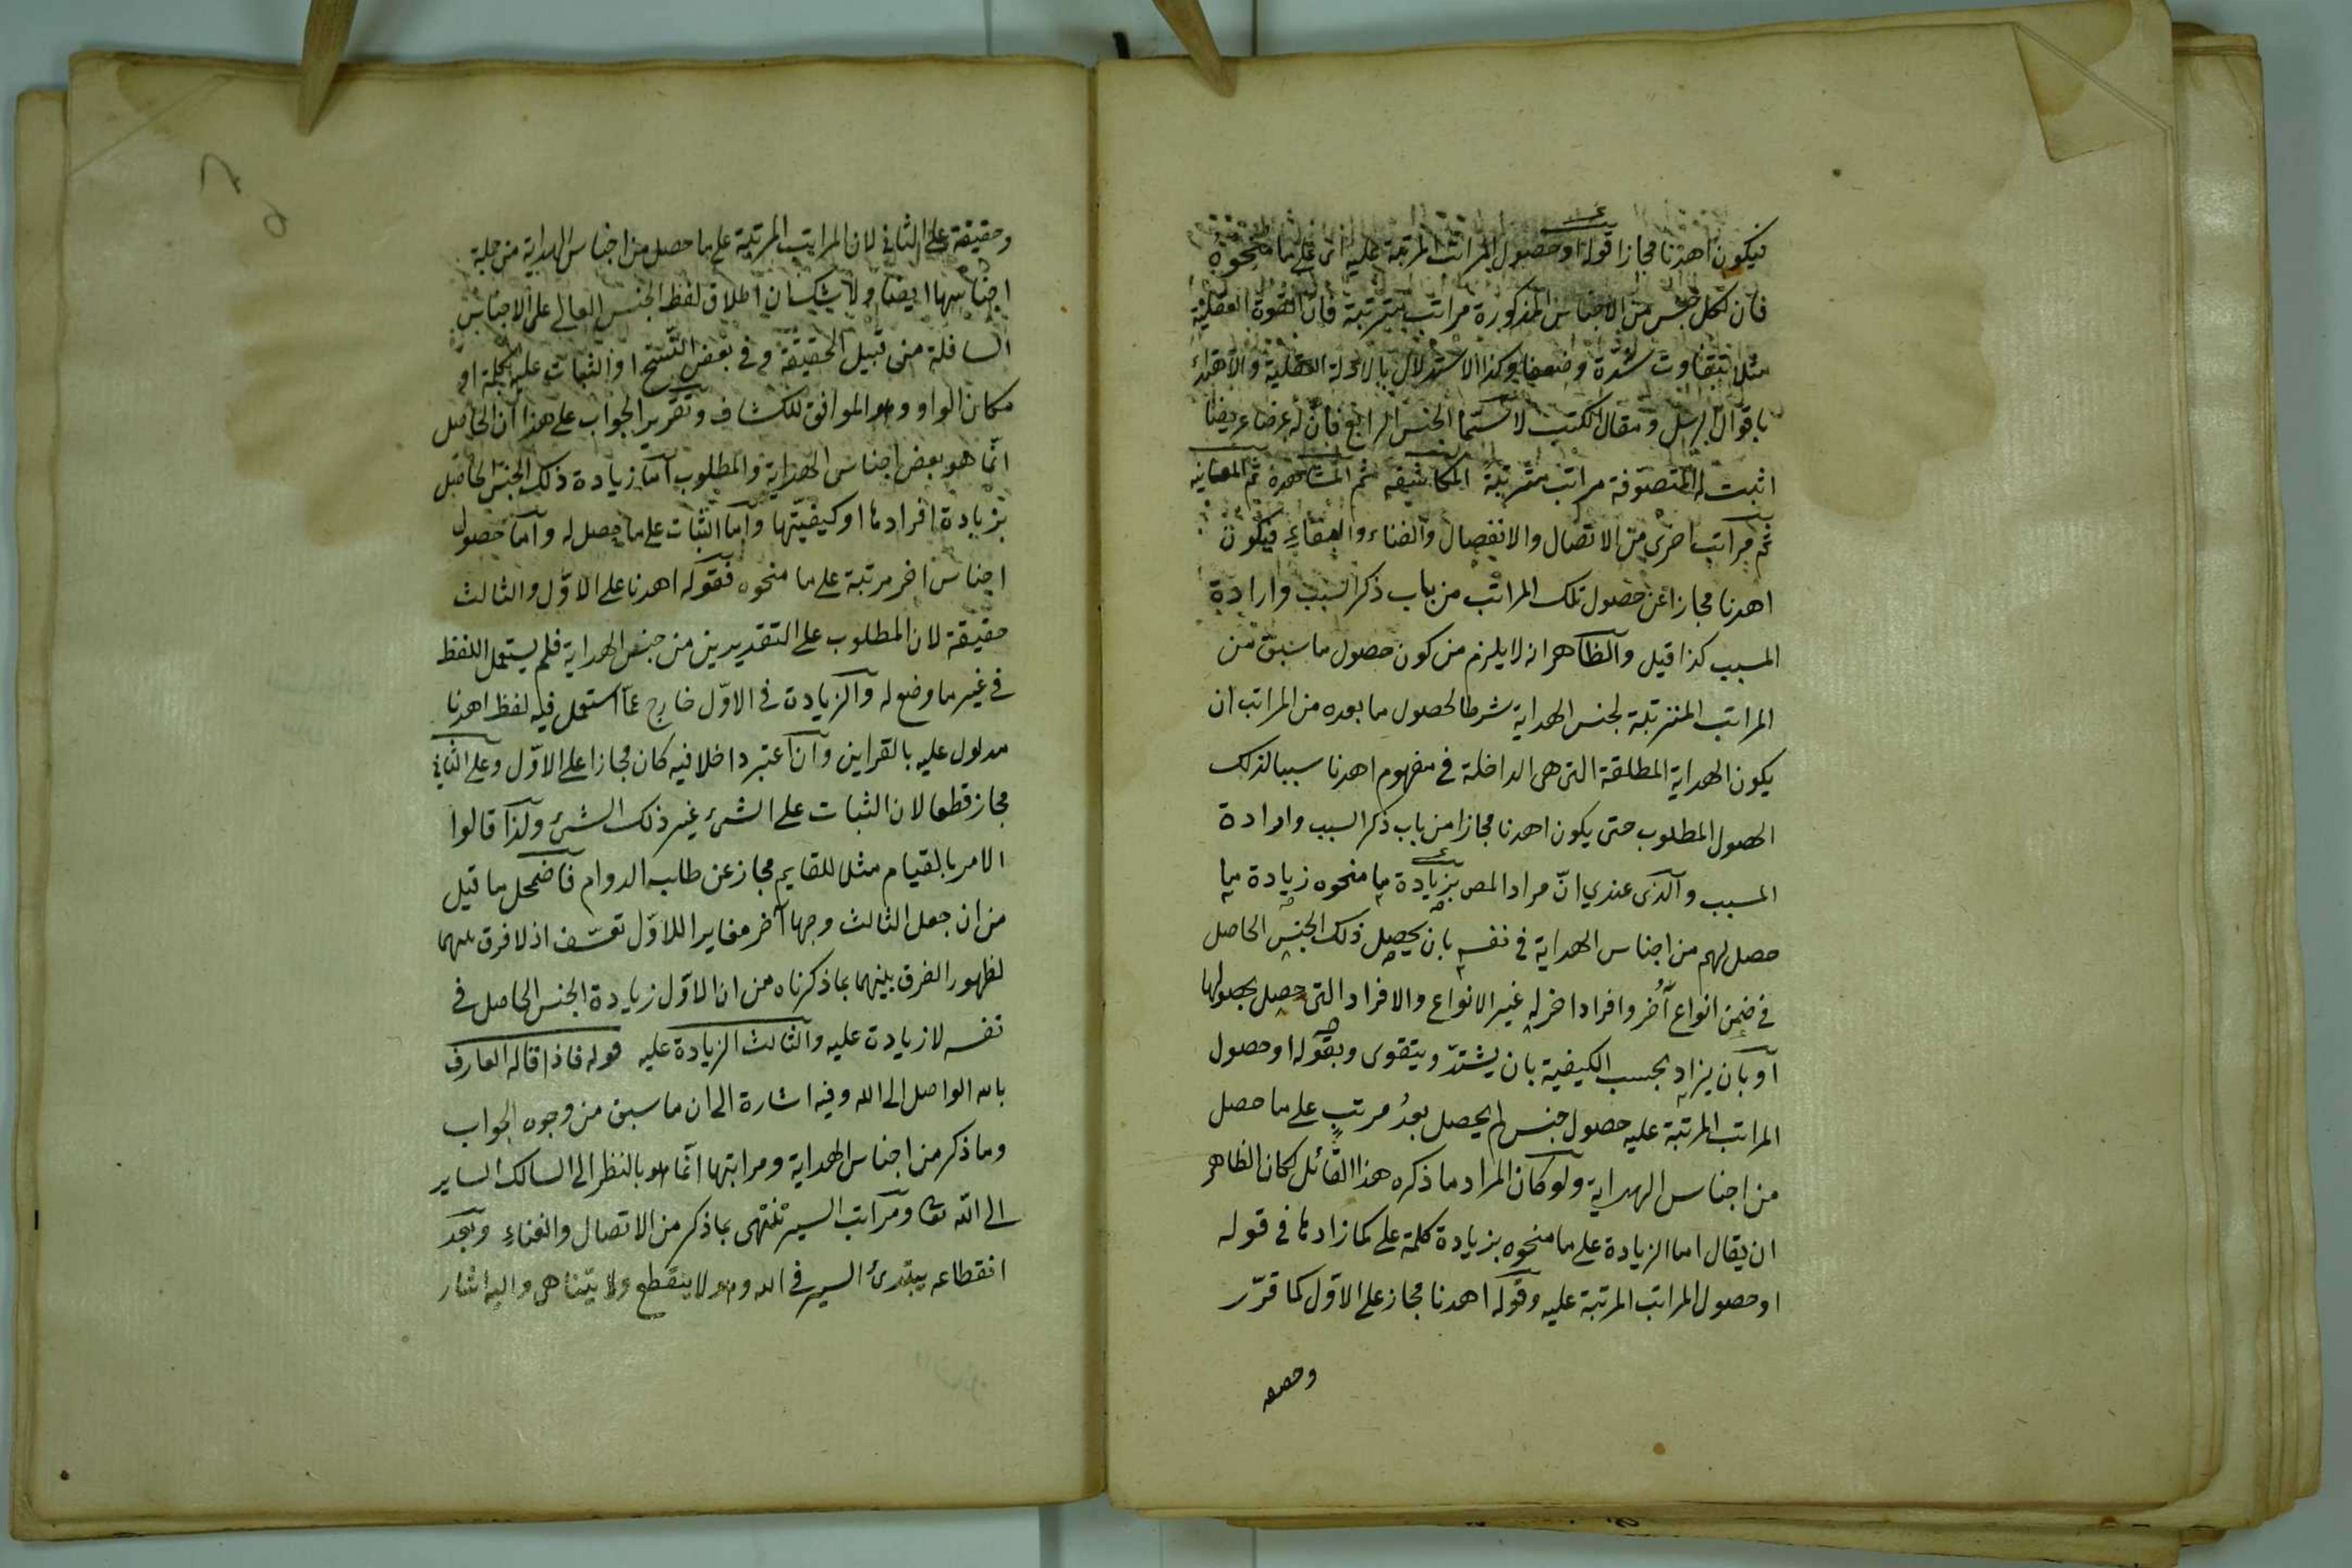 فيكون اهدنا مجازا قوله او حصول المراتب المرتبة عليه اى على ما منحوه
فان لكل جنس من الاجناس المذكورة مراتب مترتبة فان القوة العقلية
مثلا تتفاوت شدة وضعفا وكذا الاستدلال بالادلة العقلية والاهتداء
باقوال الرسل ومقال الكتب لا سيما الجنس الرابع فان له عرضا عريضا
اثبت له المتصوفة مراتب مترتبة المكاشفة ثم المشاهدة ثم المعاينة
ثم مراتب اخرى من الاتصال والانفصال والفناء والبقاء فيكون
اهدنا مجازا عن حصول تلك المراتب من باب ذكر السبب وارادة
المسبب كذا قيل والظاهر انه لا يلزم من كون حصول ما سبق من
المراتب المترتبة لجنس الهداية شرطا لحصول ما بعده من المراتب ان
يكون الهداية المطلقة التى هى الداخلة في مفهوم اهدنا سببا لذلك
الحصول المطلوب حتى يكون اهدنا مجازا من باب ذكر السبب وارادة
المسبب والذى عندي انّ مراد المص بزيادة ما منحوه زيادة ما
حصل لهم من اجناس الهداية في نفسه بان يحصل ذلك الجنس الحاصل
في ضمن انواع أخر وافراد اخر له غير الانواع والافراد التى حصل بحصولها
او بان يزاد بحسب الكيفية بان يشتدّ ويتقوى وبقوله او حصول
المراتب المرتبة عليه حصول جنس لم يحصل بعدُ مرتبٍ على ما حصل
من اجناس الهداية ولو كان المراد ما ذكره هذا القائل لكان الظاهر
ان يقال اما الزيادة على ما منحوه بزيادة كلمة على كما زادها في قوله
او حصول المراتب المرتبة عليه وقوله اهدنا مجاز على الاوّل كما قرّر
وحصعه
وحقيقة على الثانى لان المراتب المرتبة على ما حصل من اجناس الهداية من جملة
اجناسها ايضا ولا شك ان اطلاق لفظ الجنس العالى على الاجناس
السافلة من قبيل الحقيقة وفي بعض النسخ او الثبات عليه بكلمة او
مكان الواو وهو الموافق للكشاف وتقرير الجواب على هذا ان الحاصل
انّما هو بعض اجناس الهداية والمطلوب اما زيادة ذلك الجنس الحاصل
بزيادة افرادها او كيفيتها واما الثبات على ما حصل له واما حصول
اجناس اخر مرتبة على ما منحوه فقوله اهدنا على الاوّل والثالث
حقيقة لان المطلوب على التقديرين من جنس الهداية فلم يستعمل اللفظ
في غير ما وضع له والزيادة في الاوّل خارج عمّا استعمل فيه لفظ اهدنا
مدلول عليه بالقراين وان اعتبر داخلا فيه كان مجازا على الاوّل وعلى الثانى
مجاز قطعا لان الثبات على الشئ غير ذلك الشئ ولذا قالوا
الامر بالقيام مثلا للقايم مجاز عن طلب الدوام فاضمحل ما قيل
من ان جعل الثالث وجها آخر مغايرا للاوّل تعسّف اذ لا فرق بينهما
لظهور الفرق بينهما بما ذكرناه من ان الاوّل زيادة الجنس الحاصل في
نفسه لا زيادة عليه والثالث الزيادة عليه قوله فاذا قاله العارف
بالله الواصل الى الله وفيه اشارة الى ان ما سبق من وجوه الجواب
وما ذكر من اجناس الهداية ومراتبها انّما هو بالنظر الى السالك الساير
الى الله تعا ومراتب السير تنتهى بما ذكر من الاتصال والفناء وبعد
انقطاعه يبتدئ السير في الله وهو لا ينقطع ولا يتناهى واليه اشار